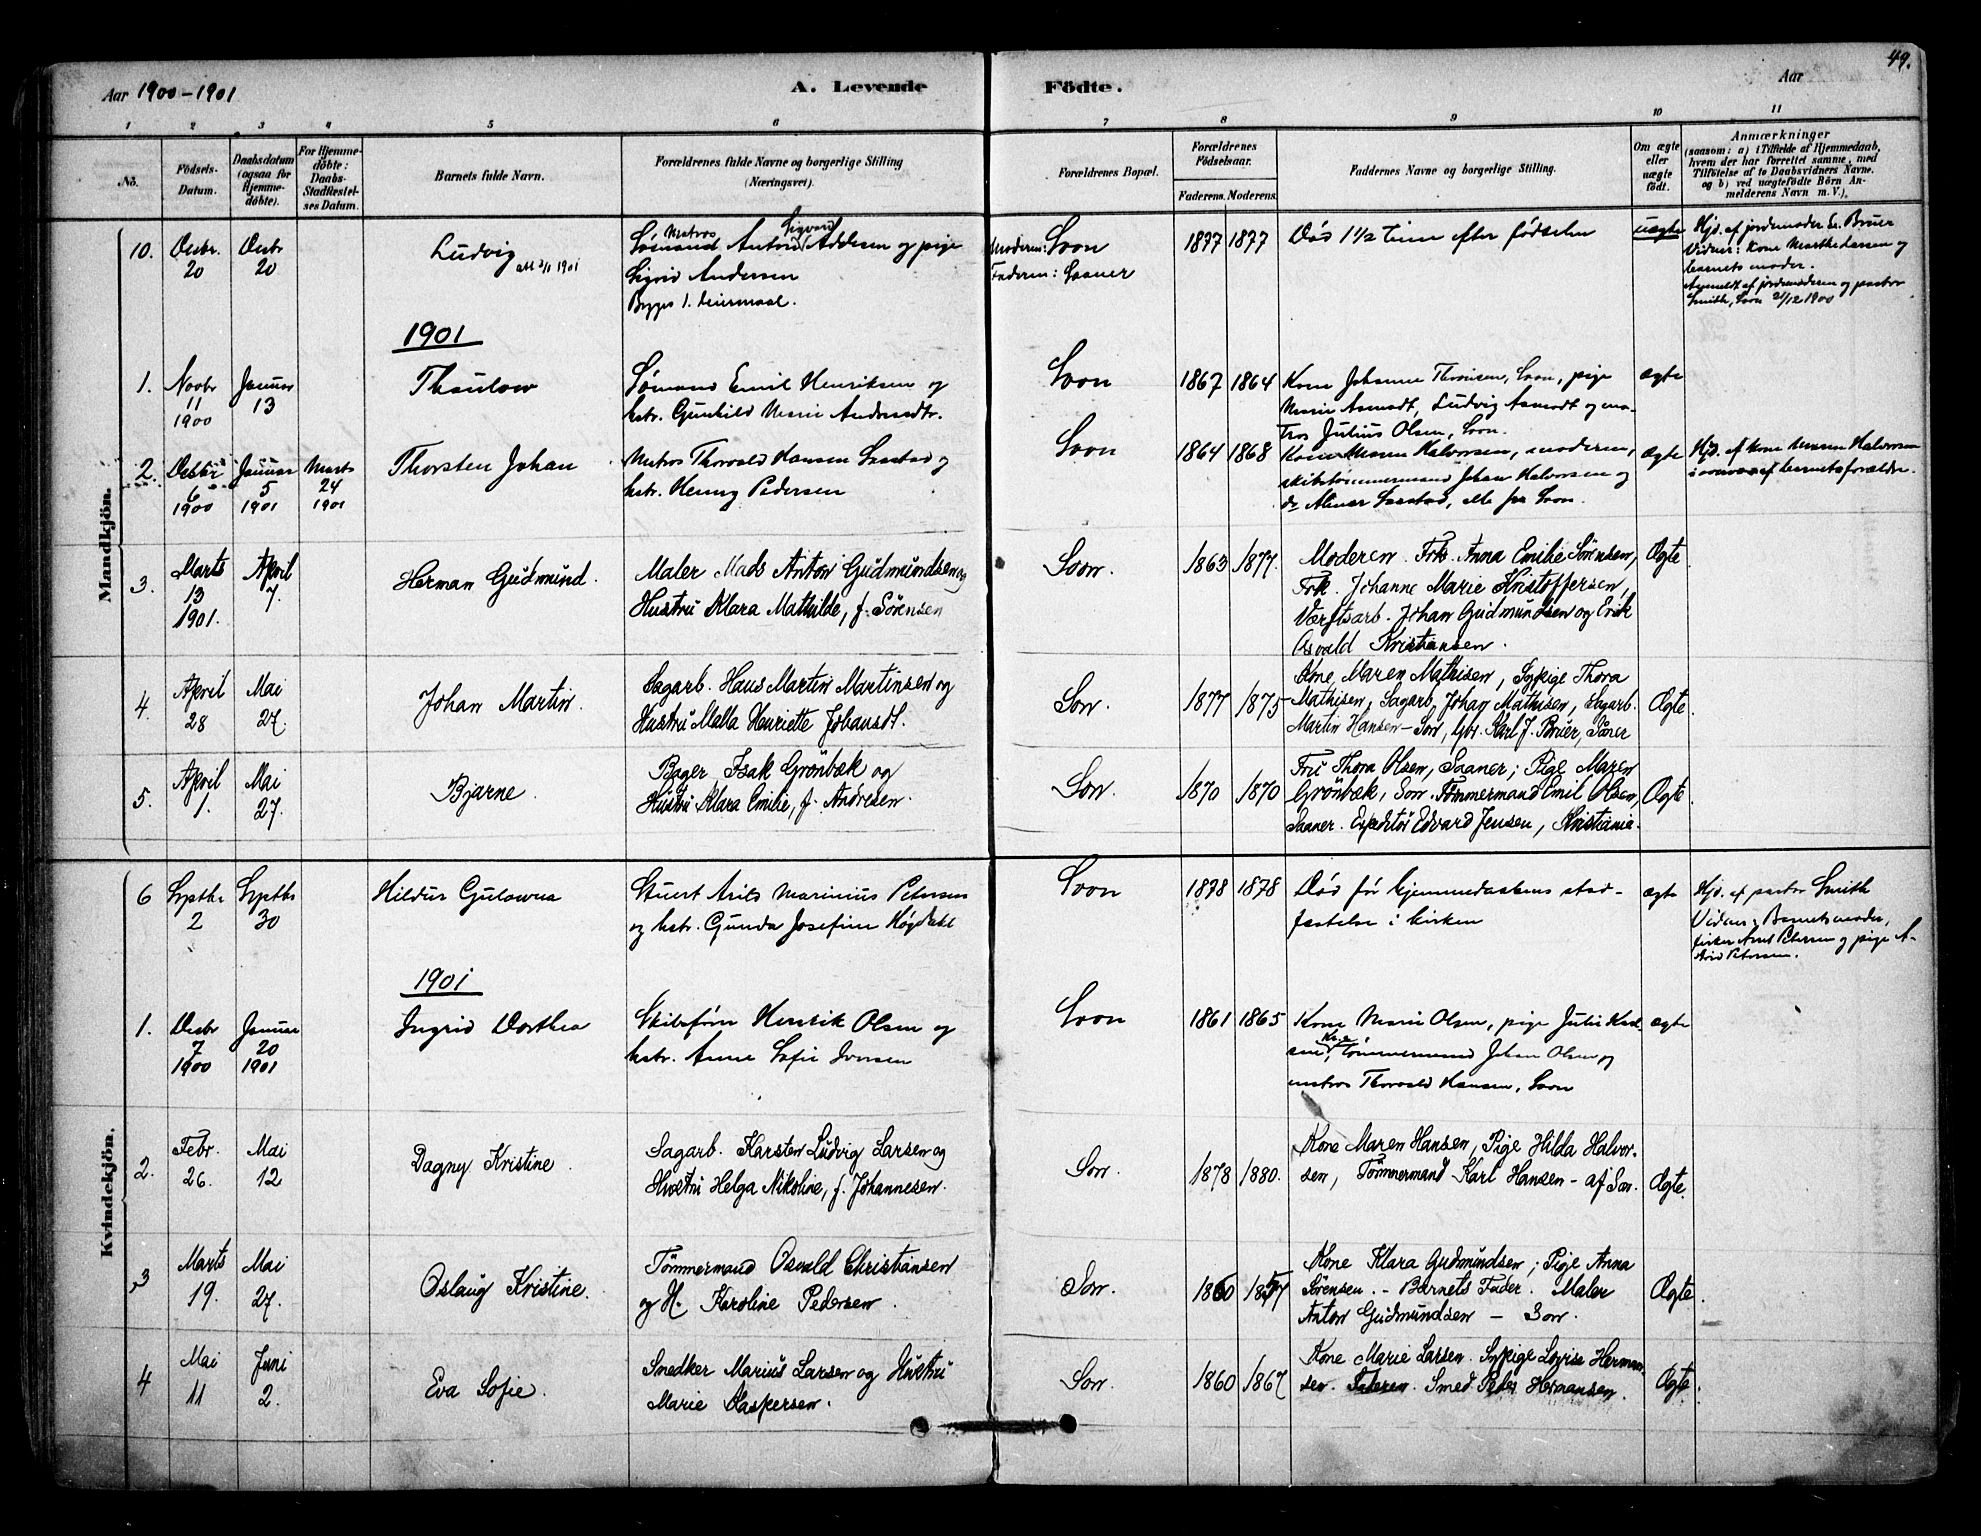 49.
Aar 1900-1901
A. Levende
Födte.
Aar
1 2 3 4 5 6 7 8 9 10 11
No.
Födsels-
Datum.
Daabsdatum
(ogsaa for
Hjemme-
döbte).
For Hjemme-
döbte:
Daabs-
Stadfæstel-
ses Datum.
Barnets fulde Navn.
Forældrenes fulde Navne og borgerlige Stilling
(Næringsvei).
Forældrenes Bopæl.
Forældrenes
Födselsaar.
Faderens. Moderens.
Faddernes Navne og borgerlige Stilling.
Om ægte
eller
uægte
födt.
Anmærkninger
(saasom: a) i Tilfælde af Hjemmedaab,
hvem der har forrettet samme, med
Tilföielse af to Daabsvidners Navne.
og b) ved uægtefödte Börn An-
melderens Navn m. V.).
Mandkjön.
10.
Desbr.
20
Desbr
20
Ludvig
att 2/1 1901
Matros Sigvard
Sømand Anton Andersen og pige
Sigrid Andersen
Begges 1. leiermaal.
Moderen: Soon
Faderen: Saaner
1877 1877
Død 1 1/2 time efter fødselen
uægte
Hjd. af jordemoder E. Bruer
Vidner: Kone Marthe Larsen og
barnets moder.
Anmeldt af jordemoderen og pastor
Smith, Soon 21/12 1900
1901
1.
Novbr
11
1900
Januar
13
Thaulow
Sømand Emil Henriksen og
hstr. Gunhild Marie Andersdtr.
Soon
1867 1864
Kone Johanne Thoresen, Soon, pige
Marie Asmodt, Ludvig Asmodt og ma-
tros Julius Olsen, Soon.
ægte
2.
Desbr
6
1900
Januar
5
1901
Marts
24
1901
Thorsten Johan
Matros Thorvald Hansen Saastad og
hstr. Henny Pedersen
Soon
1864 1868
Kone Maren Halvorsen, moderen,
skibstømmermand Johan Halvorsen og
do Almar Saastad, alle fra Soon.
ægte
Hjd. af kone Maren Halvorsen
i nærvær af barnets forældre.
3.
Marts
13
1901.
April
7.
Herman Gudmund.
Maler Mads Anton Gudmundsen og
Hustru Klara Mathilde, f. Sörensen
Soon.
1863 1877.
Moderen. Frk. Anna Emilie Sörensen,
Frk. Johanne Marie Kristoffersen,
Værftsarb. Johan Gudmundsen og Erik
Osvald Kristiansen.
Ægte.
4.
April
28
Mai
27.
Johan Martin.
Sagarb. Hans Martin Martinsen og
Hustru Mella Henriette Johansdt.
Son.
1877 1875
Kone Maren Mathisen, Sypige Thora
Mathisen, Sagarb. Johan Mathisen, Sagarb.
Martin Hansen-Son, Gbr. Karl J. Bruer, Såner
Ægte.
5.
April
1.
Mai
27.
Bjarne.
Bager Isak Grönbæk og
Hustru Klara Emilie, f. Andresen.
Son.
1870 1870
Fru Thora Olsen, Saaner; Pige Maren
Grönbæk, Son. Tömmermand Emil Olsen,
Saaner. Expeditör Edvard Jensen, Kristiania.
Ægte.
Kvindekjön.
6
Septbr
2
Septbr
30
Hildur Gulowna
Stuert Arils Marinius Petersen
og hstr. Gunda Josefine Høgdahl
Soon
1878 1878
Død før hjemmedaabens stad-
fæstelse i kirken
ægte
Hjd. af pastor Smith
Vidner: Barnets moder,
fisker Axel Petersen og pige A-
strid Petersen.
1901
1.
Desbr
7
1900
Januar
20
1901
Ingrid Dorthea
Skibsfører Henrik Olsen og
hstr. Anne Sofie Iversen
Soon
1861 1865
Kone Marie Olsen, pige Julie Karl-
sen, Kr.a, tømmermand Johan Olsen og
matros Thorvald Hansen, Soon
ægte
2.
Febr.
26.
Mai
12
Dagny Kristine.
Sagarb. Karsten Ludvig Larsen og
Hustru Helga Nikoline, f. Johannesen.
Son.
1878 1880.
Kone Maren Hansen, Pige Hilda Halvor-
sen, Tömmermand Karl Hansen - af Son.
Ægte.
3
Marts
19.
Mai
27.
Oslaug Kristine.
Tömmermand Osvald Christiansen
og H. Karoline Pedersen.
Son.
1860 1857
Kone Klara Gudmundsen; Pige Anna
Sörensen. - Barnets Fader. Maler
Anton Gudmundsen - Son.
Ægte.
4
Mai
11
Juni
2.
Eva Sofie.
Snedker Marius Larsen og Hustru
Marie Kaspersen.
Son.
1860 1867
Kone Marie Larsen. Sypige Lovise Herman-
sen. Faderen. Smed Peder Hermansen.
Ægte.